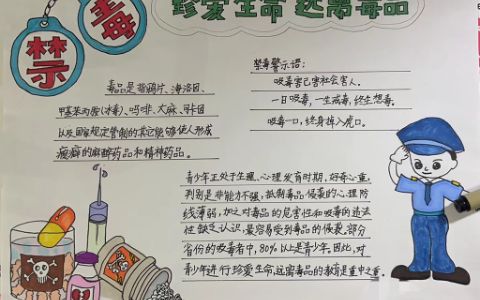 禁毒
珍爱生命 远离毒品
毒品是指鸦片、海洛因、
甲基苯丙胺(冰毒)、吗啡、大麻、可卡因
以及国家规定管制的其它能够使人形成
瘾癖的麻醉药品和精神药品。
禁毒警示语:
吸毒害己害社会害人.
一日吸毒,一生病毒,终生想毒.
吸毒一口,终身掉入虎口。
青少年正处于生理、心理发育时期,好奇心重,
判别是非能力不强,抵制毒品侵袭的心理防
线薄弱,加之对毒品的危害性和吸毒的违法
性缺乏认识,最容易受到毒品的侵袭,部分
省份的吸毒者中,80%以上是青少年。因此,对
青少年进行珍爱生命,远离毒品的教育是重中之重.